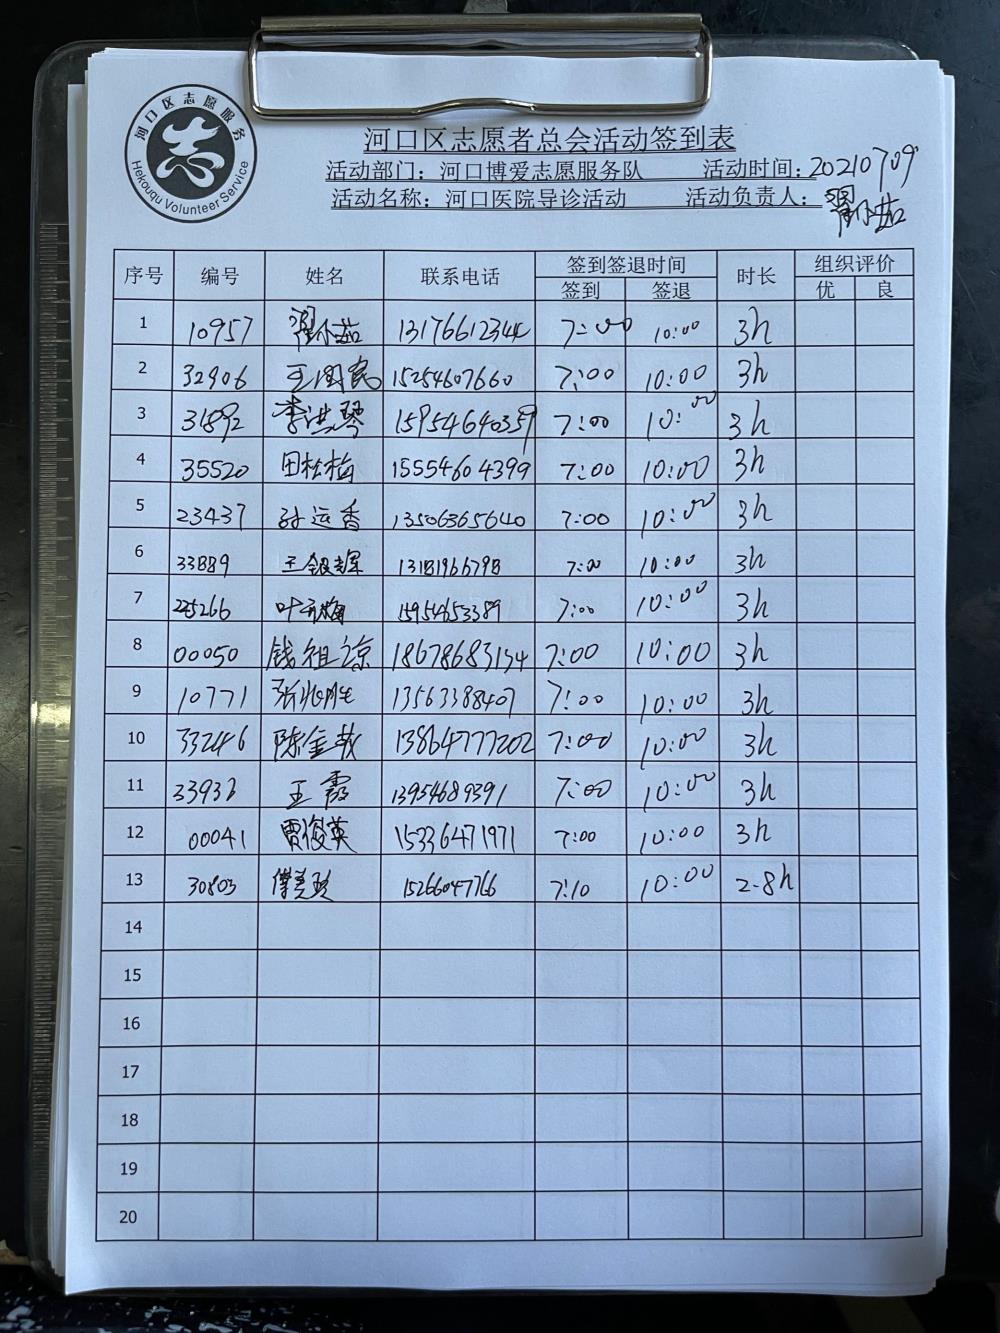 河口区志愿服务
志
Hekouqu Volunteer Service
河口区志愿者总会活动签到表
活动部门：河口博爱志愿服务队 活动时间：20210709
活动名称：河口医院导诊活动 活动负责人：
序号 编号 姓名 联系电话 签到签退时间 时长 组织评价
签到 签退 优 良
1 10957 13176612344 7:00 10:00 3h
2 32906 王国民 15254607660 7:00 10:00 3h
3 31892 李洪琴 15954640359 7:00 10:00 3h
4 35520 田松梅 15554604399 7:00 10:00 3h
5 23437 孙运香 13506365640 7:00 10:00 3h
6 33889 王银辉 13181966798 7:00 10:00 3h
7 25266 叶 15954653389 7:00 10:00 3h
8 00050 钱祖凉 18678683154 7:00 10:00 3h
9 10771 张兆胜 13563388407 7:00 10:00 3h
10 33246 陈金 13864777202 7:00 10:00 3h
11 33936 王霞 13954689391 7:00 10:00 3h
12 00041 贾俊英 15336471971 7:00 10:00 3h
13 30803 15266047766 7:10 10:00 2.8h
14
15
16
17
18
19
20